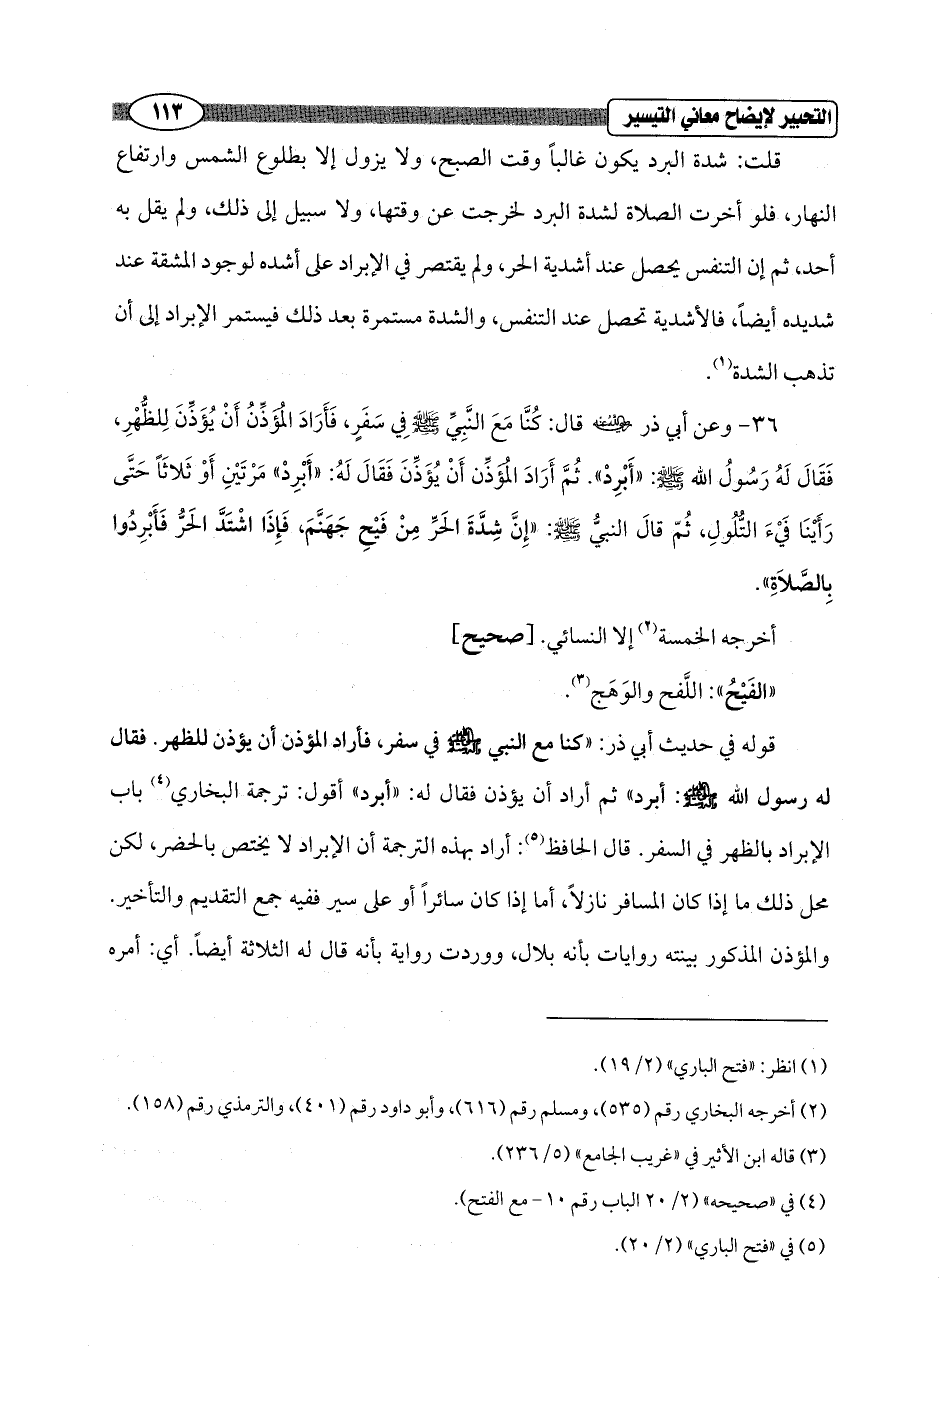 التحبير لإيضاح معاني التيسير ١١٣
قلت: شدة البرد يكون غالباً وقت الصبح، ولا يزول إلا بطلوع الشمس وارتفاع
النهار، فلو أخرت الصلاة لشدة البرد لخرجت عن وقتها، ولا سبيل إلى ذلك، ولم يقل به
أحد، ثم إن التنفس يحصل عند أشدية الحر، ولم يقتصر في الإبراد على أشده لوجود المشقة عند
شديده أيضاً، فالأشدية تحصل عند التنفس، والشدة مستمرة بعد ذلك فيستمر الإبراد إلى أن
تذهب الشدة(١).
٣٦- وعن أبي ذر رضي الله عنه قال: كُنَّا مَعَ النَّبِيِّ ﷺ فِي سَفَرٍ، فَأَرَادَ المُؤَذِّنُ أَنْ يُؤَذِّنَ لِلظُّهْرِ،
فَقَالَ لَهُ رَسُولُ الله ﷺ: «أَبْرِدْ». ثُمَّ أَرَادَ المُؤَذِّن أَنْ يُؤَذِّنَ فَقَالَ لَهُ: «أَبْرِدْ» مَرْتَيْنِ أَوْ ثَلاثَاً حَتَّى
رَأَيْنَا فَيْءَ التُّلُولِ، ثُمّ قالَ النبيُّ ﷺ: «إِنَّ شِدَّةَ الحَرِّ مِنْ فَيْحِ جَهَنَّمَ، فَإِذَا اشْتَدَّ الحَرُّ فَأَبْرِدُوا
بِالصَّلاَةِ».
أخرجه الخمسة(٢) إلا النسائي. [صحيح]
«الفَيْحُ»: اللَّفح والوَهَج(٣).
قوله في حديث أبي ذر: «كنا مع النبي ﷺ في سفر، فأراد المؤذن أن يؤذن للظهر. فقال
له رسول الله ﷺ: أبرد» ثم أراد أن يؤذن فقال له: «أبرد» أقول: ترجمة البخاري(٤) باب
الإبراد بالظهر في السفر. قال الحافظ(٥): أراد بهذه الترجمة أن الإبراد لا يختص بالحضر، لكن
محل ذلك ما إذا كان المسافر نازلاً، أما إذا كان سائراً أو على سير ففيه جمع التقديم والتأخير.
والمؤذن المذكور بينته روايات بأنه بلال، ووردت رواية بأنه قال له الثلاثة أيضاً. أي: أمره
(١) انظر: «فتح الباري» (٢/ ١٩).
(٢) أخرجه البخاري رقم (٥٣٥)، ومسلم رقم (٦١٦)، وأبو داود رقم (٤٠١)، والترمذي رقم (١٥٨).
(٣) قاله ابن الأثير في «غريب الجامع» (٥/ ٢٣٦).
(٤) في «صحيحه» (٢/ ٢٠ الباب رقم ١٠ - مع الفتح).
(٥) في «فتح الباري» (٢/ ٢٠).